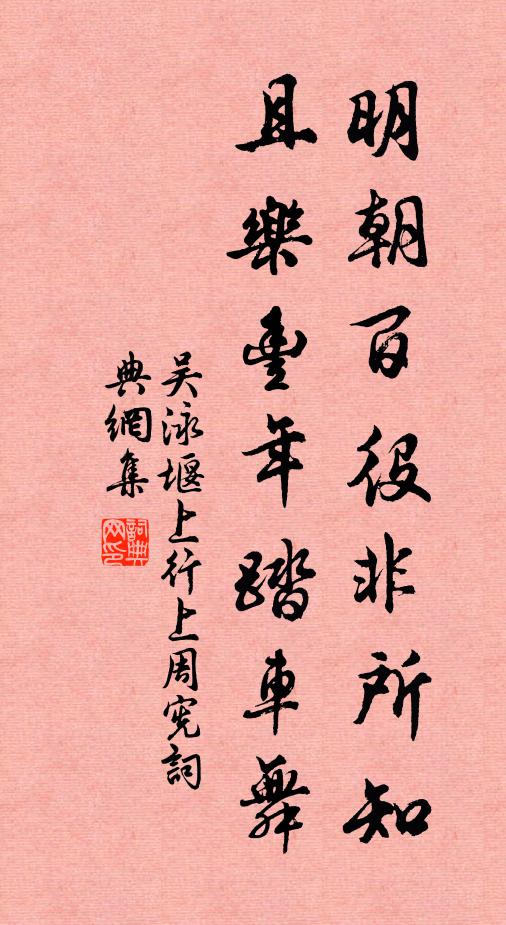 明朝百役非所知
且樂豐年踏車舞
吳泳堰上行上周宪詞
典網集
詞典
网印